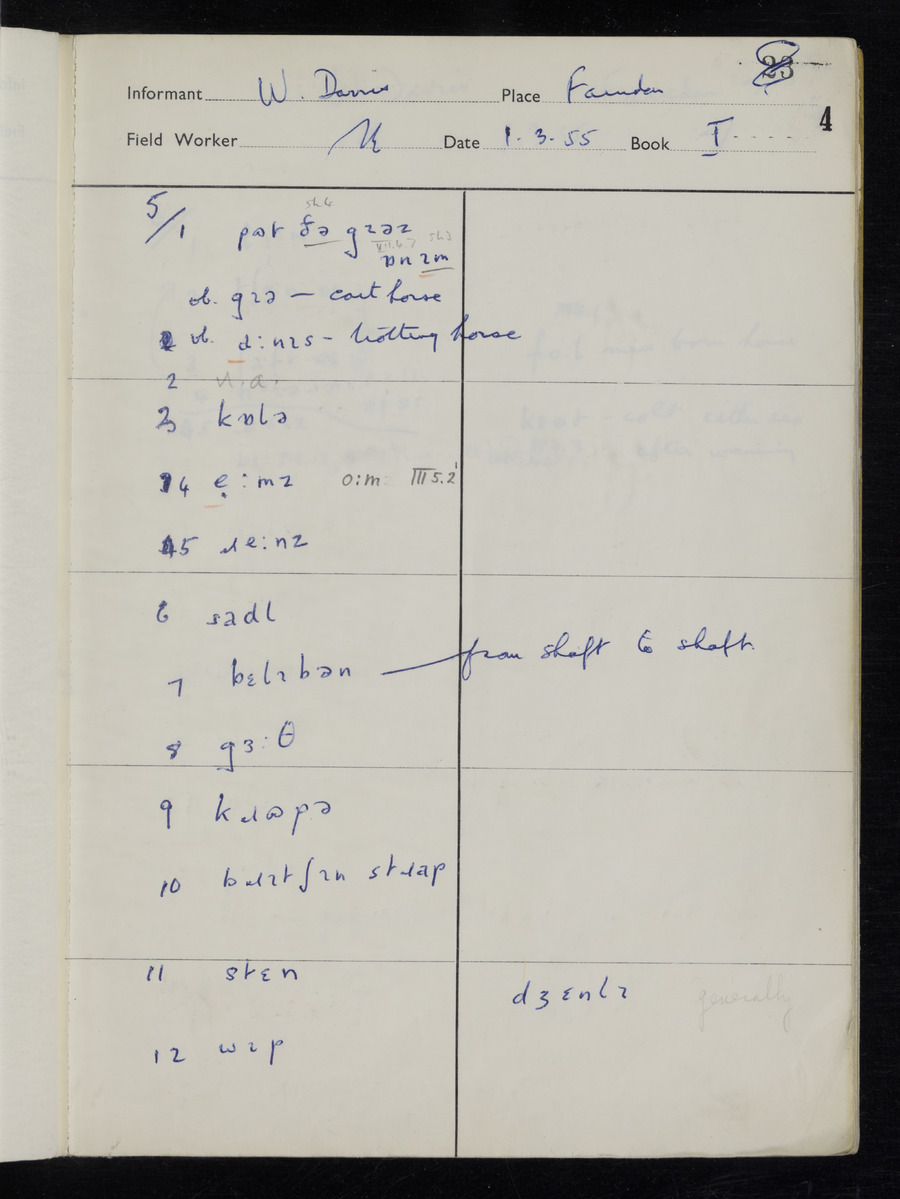 23
Informant W. Davis Place Farndon
4
Field Worker Date 1.3.55 Book I
5/1 pʊt ðə gɪəz
ɒn ɪm
ob. gɪə — cart horse
ob. a:nɪs - trotting horse
2 n.a.
3 kɒlə
4 e̞:mz o:m III 5.2
5 ɹe:nz
6 sadl
7 bɛlɪbən — from shaft to shaft.
8 gɜ:θ
9 kɹʊpə
10 bɹɪtʃɪn stɹap
11 stɛn dʒɛnlɪ generally
12 wɪp